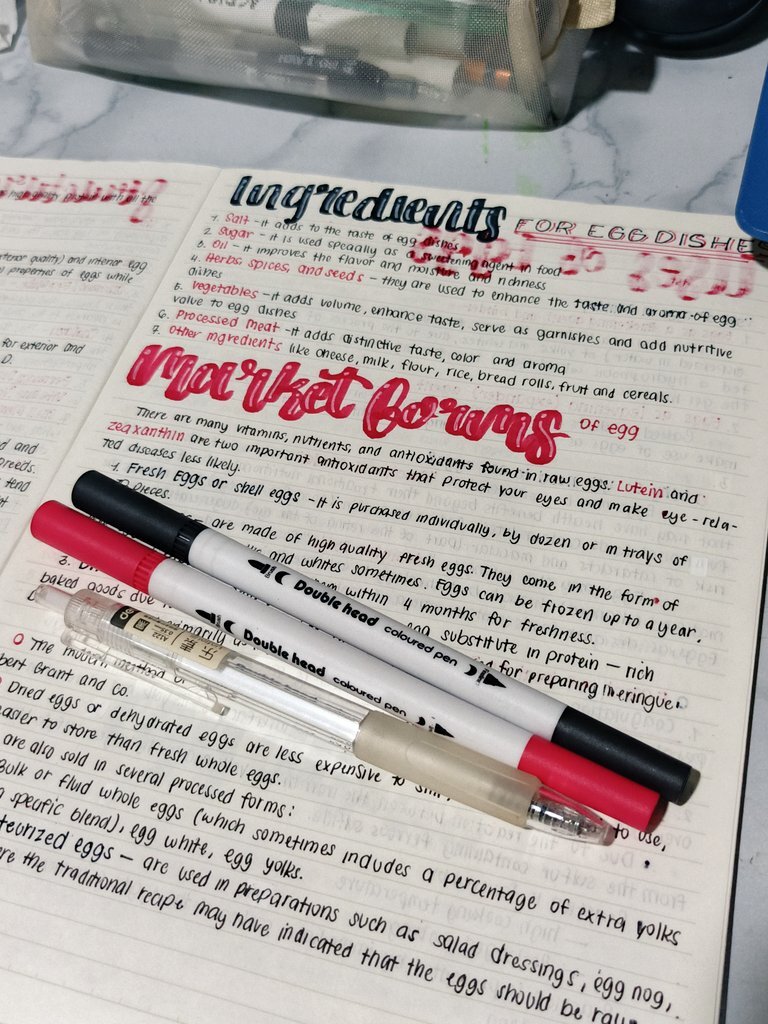 Ingredients FOR EGG DISHES
1. Salt - it adds to the taste of egg dishes
2. Sugar - it is used specially as a sweetening agent in food
3. Oil - it improves the flavor and moisture and richness
4. Herbs, spices, and seeds - they are used to enhance the taste and aroma of egg
dishes
5. Vegetables - it adds volume, enhance taste, serve as garnishes and add nutritive
value to egg dishes
6. Processed meat - it adds distinctive taste, color and aroma
7. Other ingredients like cheese, milk, flour, rice, bread rolls, fruit and cereals.
Market Forms of egg
There are many vitamins, nutrients, and antioxidants found in raw eggs. Lutein and
zeaxanthin are two important antioxidants that protect your eyes and make eye-rela-
ted diseases less likely.
1. Fresh Eggs or shell eggs - It is purchased individually, by dozen or in trays of
pieces.
are made of high quality fresh eggs. They come in the form of
and whites sometimes. Eggs can be frozen up to a year,
within 4 months for freshness.
3.
substitute in protein — rich
baked goods due
for preparing meringue.
The modern method of
bert Grant and Co.
Dried eggs or dehydrated eggs are less expensive to
easier to store than fresh whole eggs.
to use,
are also sold in several processed forms:
Bulk or fluid whole eggs (which sometimes includes a percentage of extra yolks
specific blend), egg white, egg yolks.
teurized eggs — are used in preparations such as salad dressings, egg nog,
the traditional recipe may have indicated that the eggs should be raw
terior quality) and interior egg
properties of eggs while
for exterior and
D.
and
breeds.
tend
Double head coloured pen
Double head coloured pen